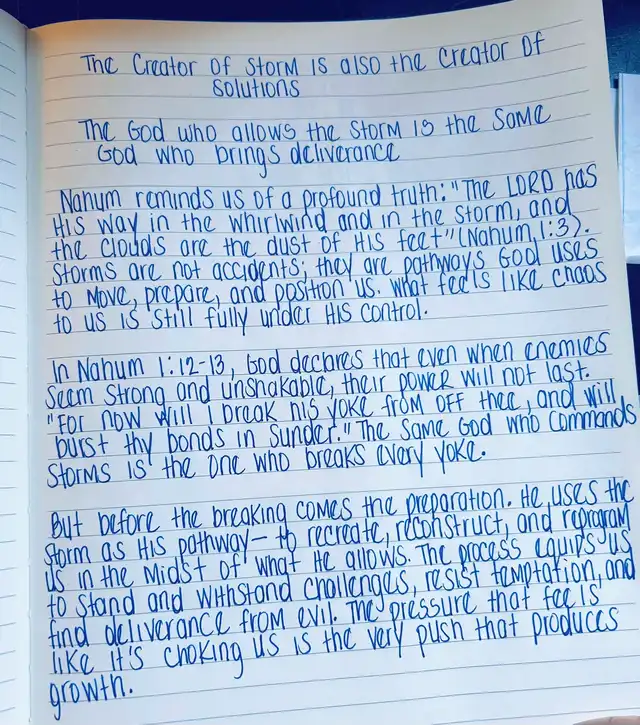 The Creator of Storm is also the Creator of
Solutions
The God who allows the Storm is the Same
God who brings deliverance
Nahum reminds us of a profound truth: "The LORD has
His way in the whirlwind and in the storm, and
the clouds are the dust of His feet" (Nahum 1:3).
Storms are not accidents; they are pathways God uses
to move, prepare, and position us. What feels like chaos
to us is still fully under His control.
In Nahum 1:12-13, God declares that even when enemies
seem strong and unshakable, their power will not last.
"For now will I break his yoke from off thee, and will
burst thy bonds in sunder." The same God who commands
storms is the one who breaks every yoke.
But before the breaking comes the preparation. He uses the
storm as His pathway— to recreate, reconstruct, and reprogram
us in the midst of what He allows. The process equips us
to stand and withstand challenges, resist temptation, and
find deliverance from evil. The pressure that feels
like it's choking us is the very push that produces
growth.